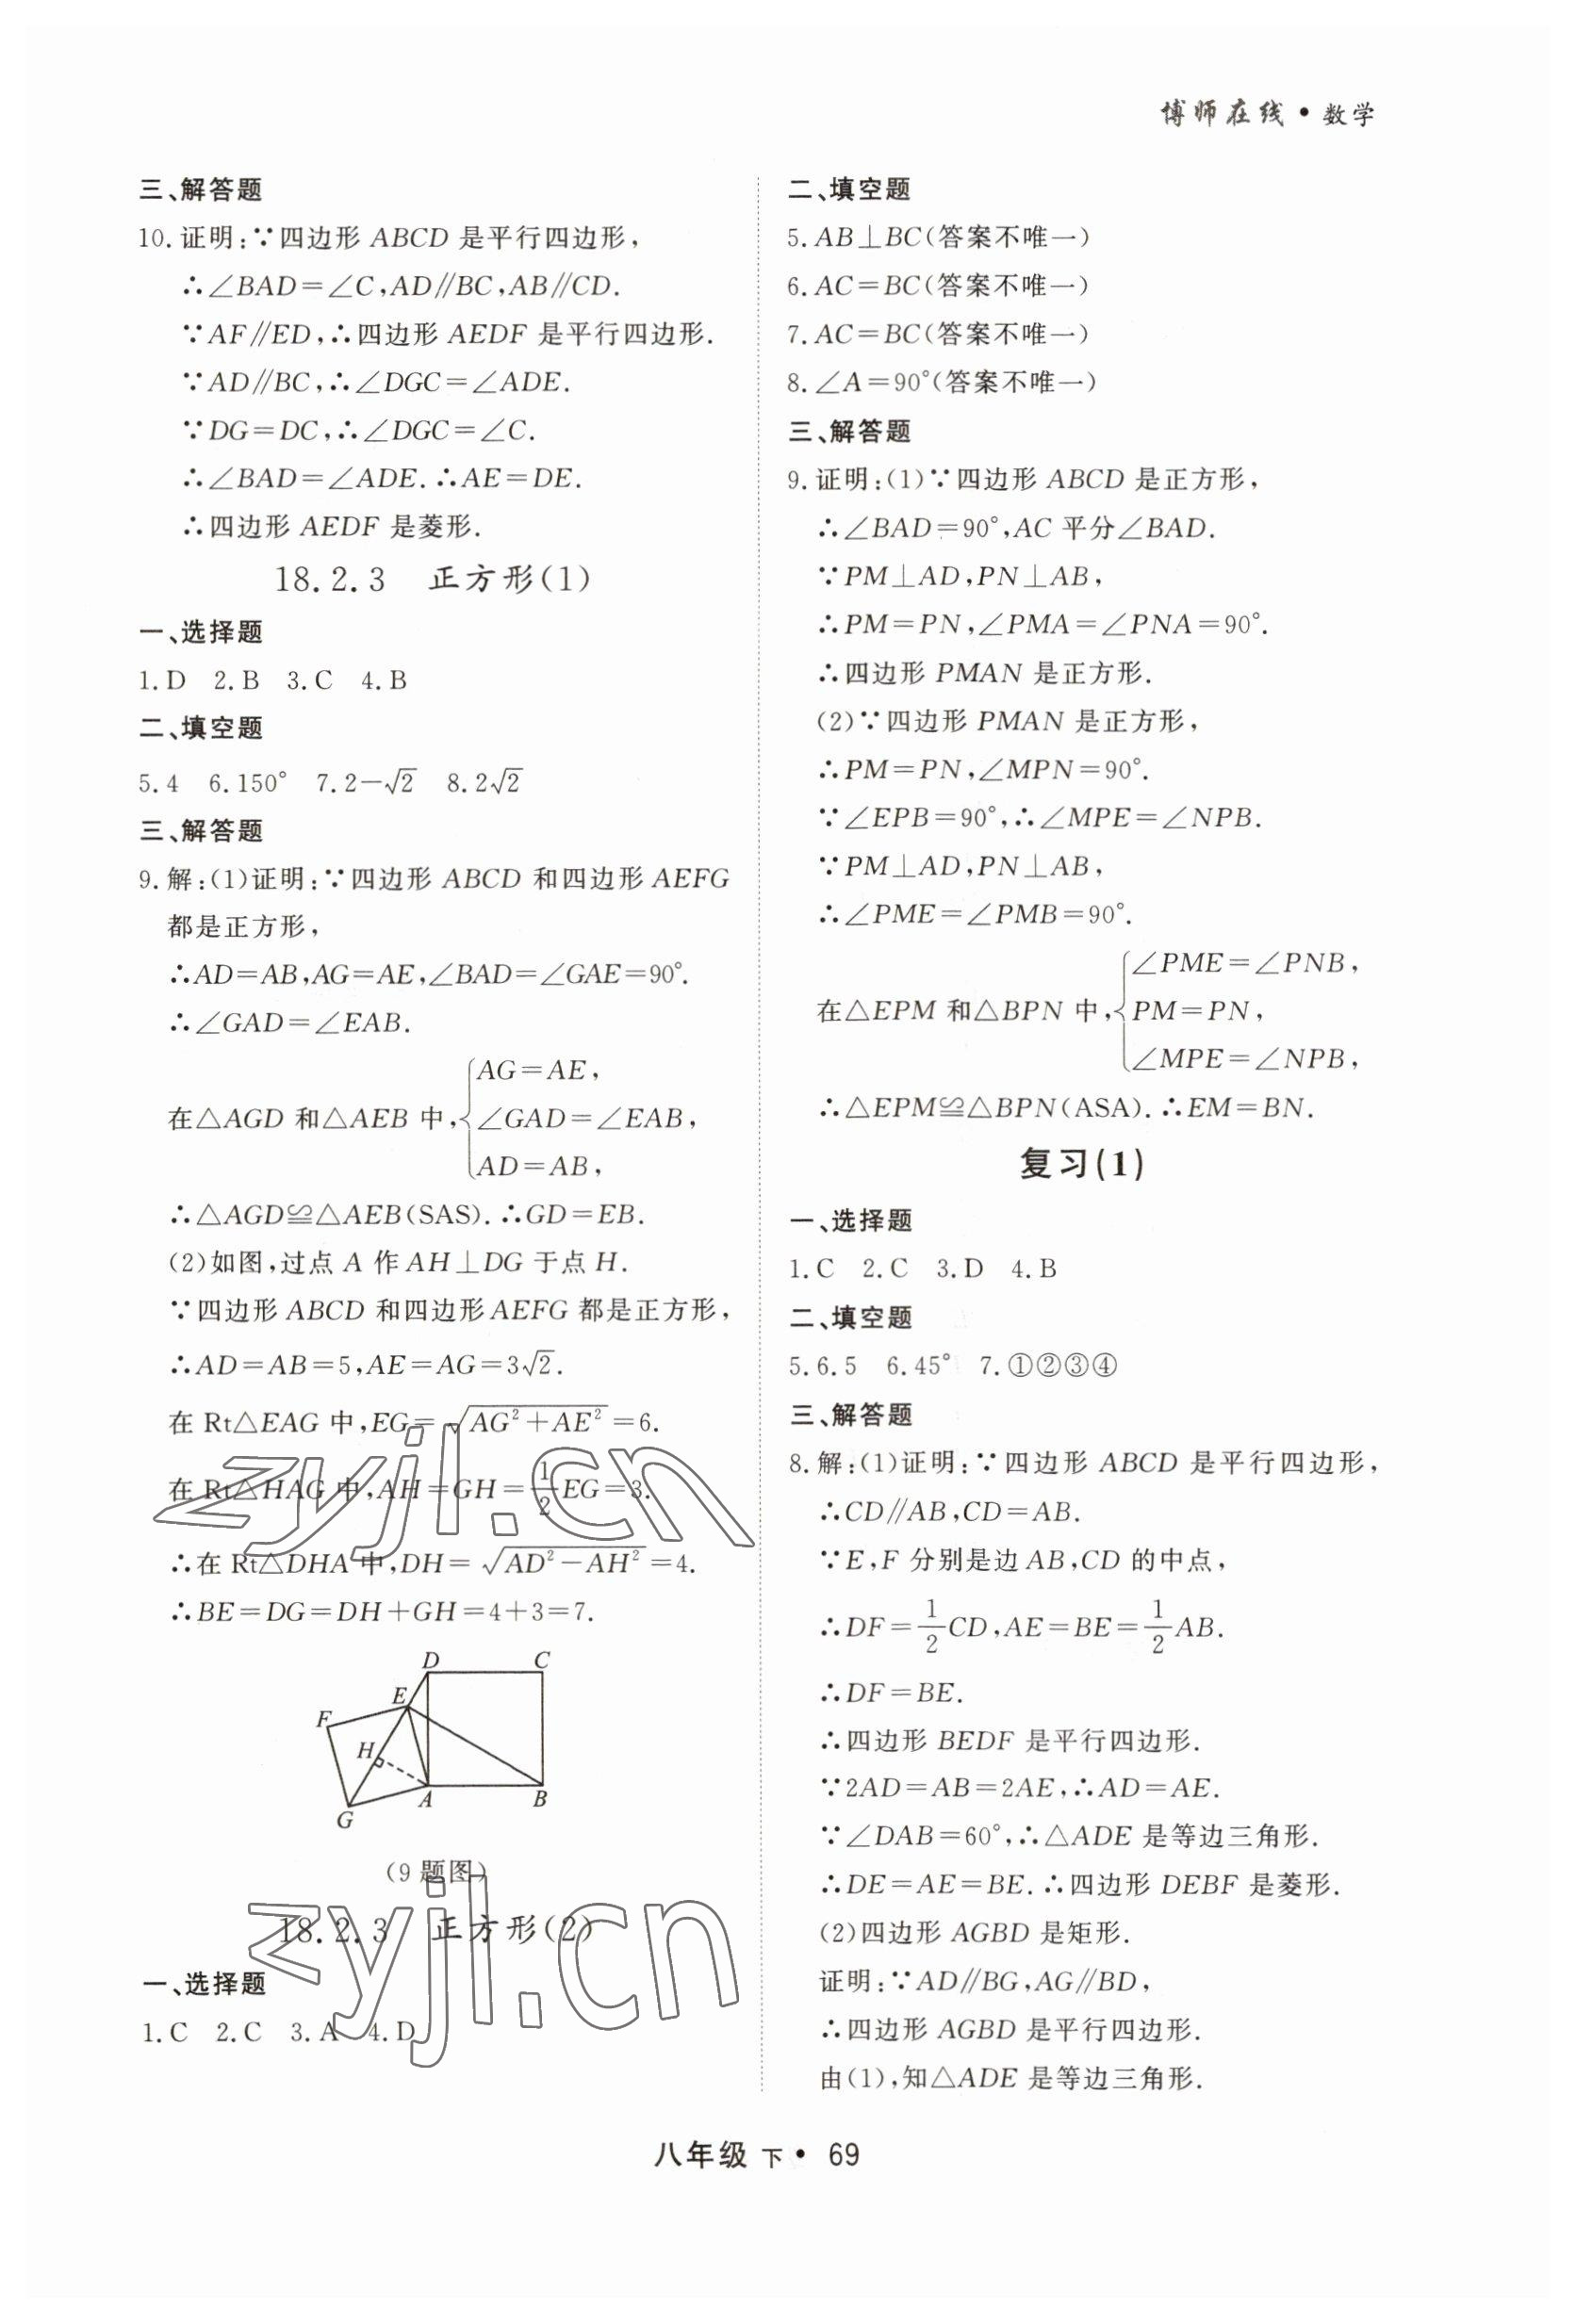 博师在线·数学
三、解答题
10.证明:∵四边形 ABCD 是平行四边形,
∴∠BAD=∠C,AD∥BC,AB∥CD.
∵AF∥ED,∴四边形 AEDF 是平行四边形.
∵AD∥BC,∴∠DGC=∠ADE.
∵DG=DC,∴∠DGC=∠C.
∴∠BAD=∠ADE.∴AE=DE.
∴四边形 AEDF 是菱形.
18.2.3 正方形(1)
一、选择题
1.D 2.B 3.C 4.B
二、填空题
5.4 6.150° 7.2-√2 8.2√2
三、解答题
9.解:(1)证明:∵四边形 ABCD 和四边形 AEFG
都是正方形,
∴AD=AB,AG=AE,∠BAD=∠GAE=90°.
∴∠GAD=∠EAB.
AG=AE,
在△AGD 和△AEB 中,{∠GAD=∠EAB,
AD=AB,
∴△AGD≌△AEB(SAS).∴GD=EB.
(2)如图,过点 A 作 AH⊥DG 于点 H.
∵四边形 ABCD 和四边形 AEFG 都是正方形,
∴AD=AB=5,AE=AG=3√2.
在 Rt△EAG 中,EG=√(AG²+AE²)=6.
在 Rt△HAG 中,AH=GH=1/2EG=3.
∴在 Rt△DHA 中,DH=√(AD²-AH²)=4.
∴BE=DG=DH+GH=4+3=7.
D C
E
F
H
A B
G
(9 题图)
18.2.3 正方形(2)
一、选择题
1.C 2.C 3.A 4.D
二、填空题
5.AB⊥BC(答案不唯一)
6.AC=BC(答案不唯一)
7.AC=BC(答案不唯一)
8.∠A=90°(答案不唯一)
三、解答题
9.证明:(1)∵四边形 ABCD 是正方形,
∴∠BAD=90°,AC 平分∠BAD.
∵PM⊥AD,PN⊥AB,
∴PM=PN,∠PMA=∠PNA=90°.
∴四边形 PMAN 是正方形.
(2)∵四边形 PMAN 是正方形,
∴PM=PN,∠MPN=90°.
∵∠EPB=90°,∴∠MPE=∠NPB.
∵PM⊥AD,PN⊥AB,
∴∠PME=∠PMB=90°.
∠PME=∠PNB,
在△EPM 和△BPN 中,{PM=PN,
∠MPE=∠NPB,
∴△EPM≌△BPN(ASA).∴EM=BN.
复习(1)
一、选择题
1.C 2.C 3.D 4.B
二、填空题
5.6.5 6.45° 7.①②③④
三、解答题
8.解:(1)证明:∵四边形 ABCD 是平行四边形,
∴CD∥AB,CD=AB.
∵E,F 分别是边 AB,CD 的中点,
∴DF=1/2CD,AE=BE=1/2AB.
∴DF=BE.
∴四边形 BEDF 是平行四边形.
∵2AD=AB=2AE,∴AD=AE.
∵∠DAB=60°,∴△ADE 是等边三角形.
∴DE=AE=BE.∴四边形 DEBF 是菱形.
(2)四边形 AGBD 是矩形.
证明:∵AD∥BG,AG∥BD,
∴四边形 AGBD 是平行四边形.
由(1),知△ADE 是等边三角形.
八年级 下·69
zyjl.cn
zyjl.cn